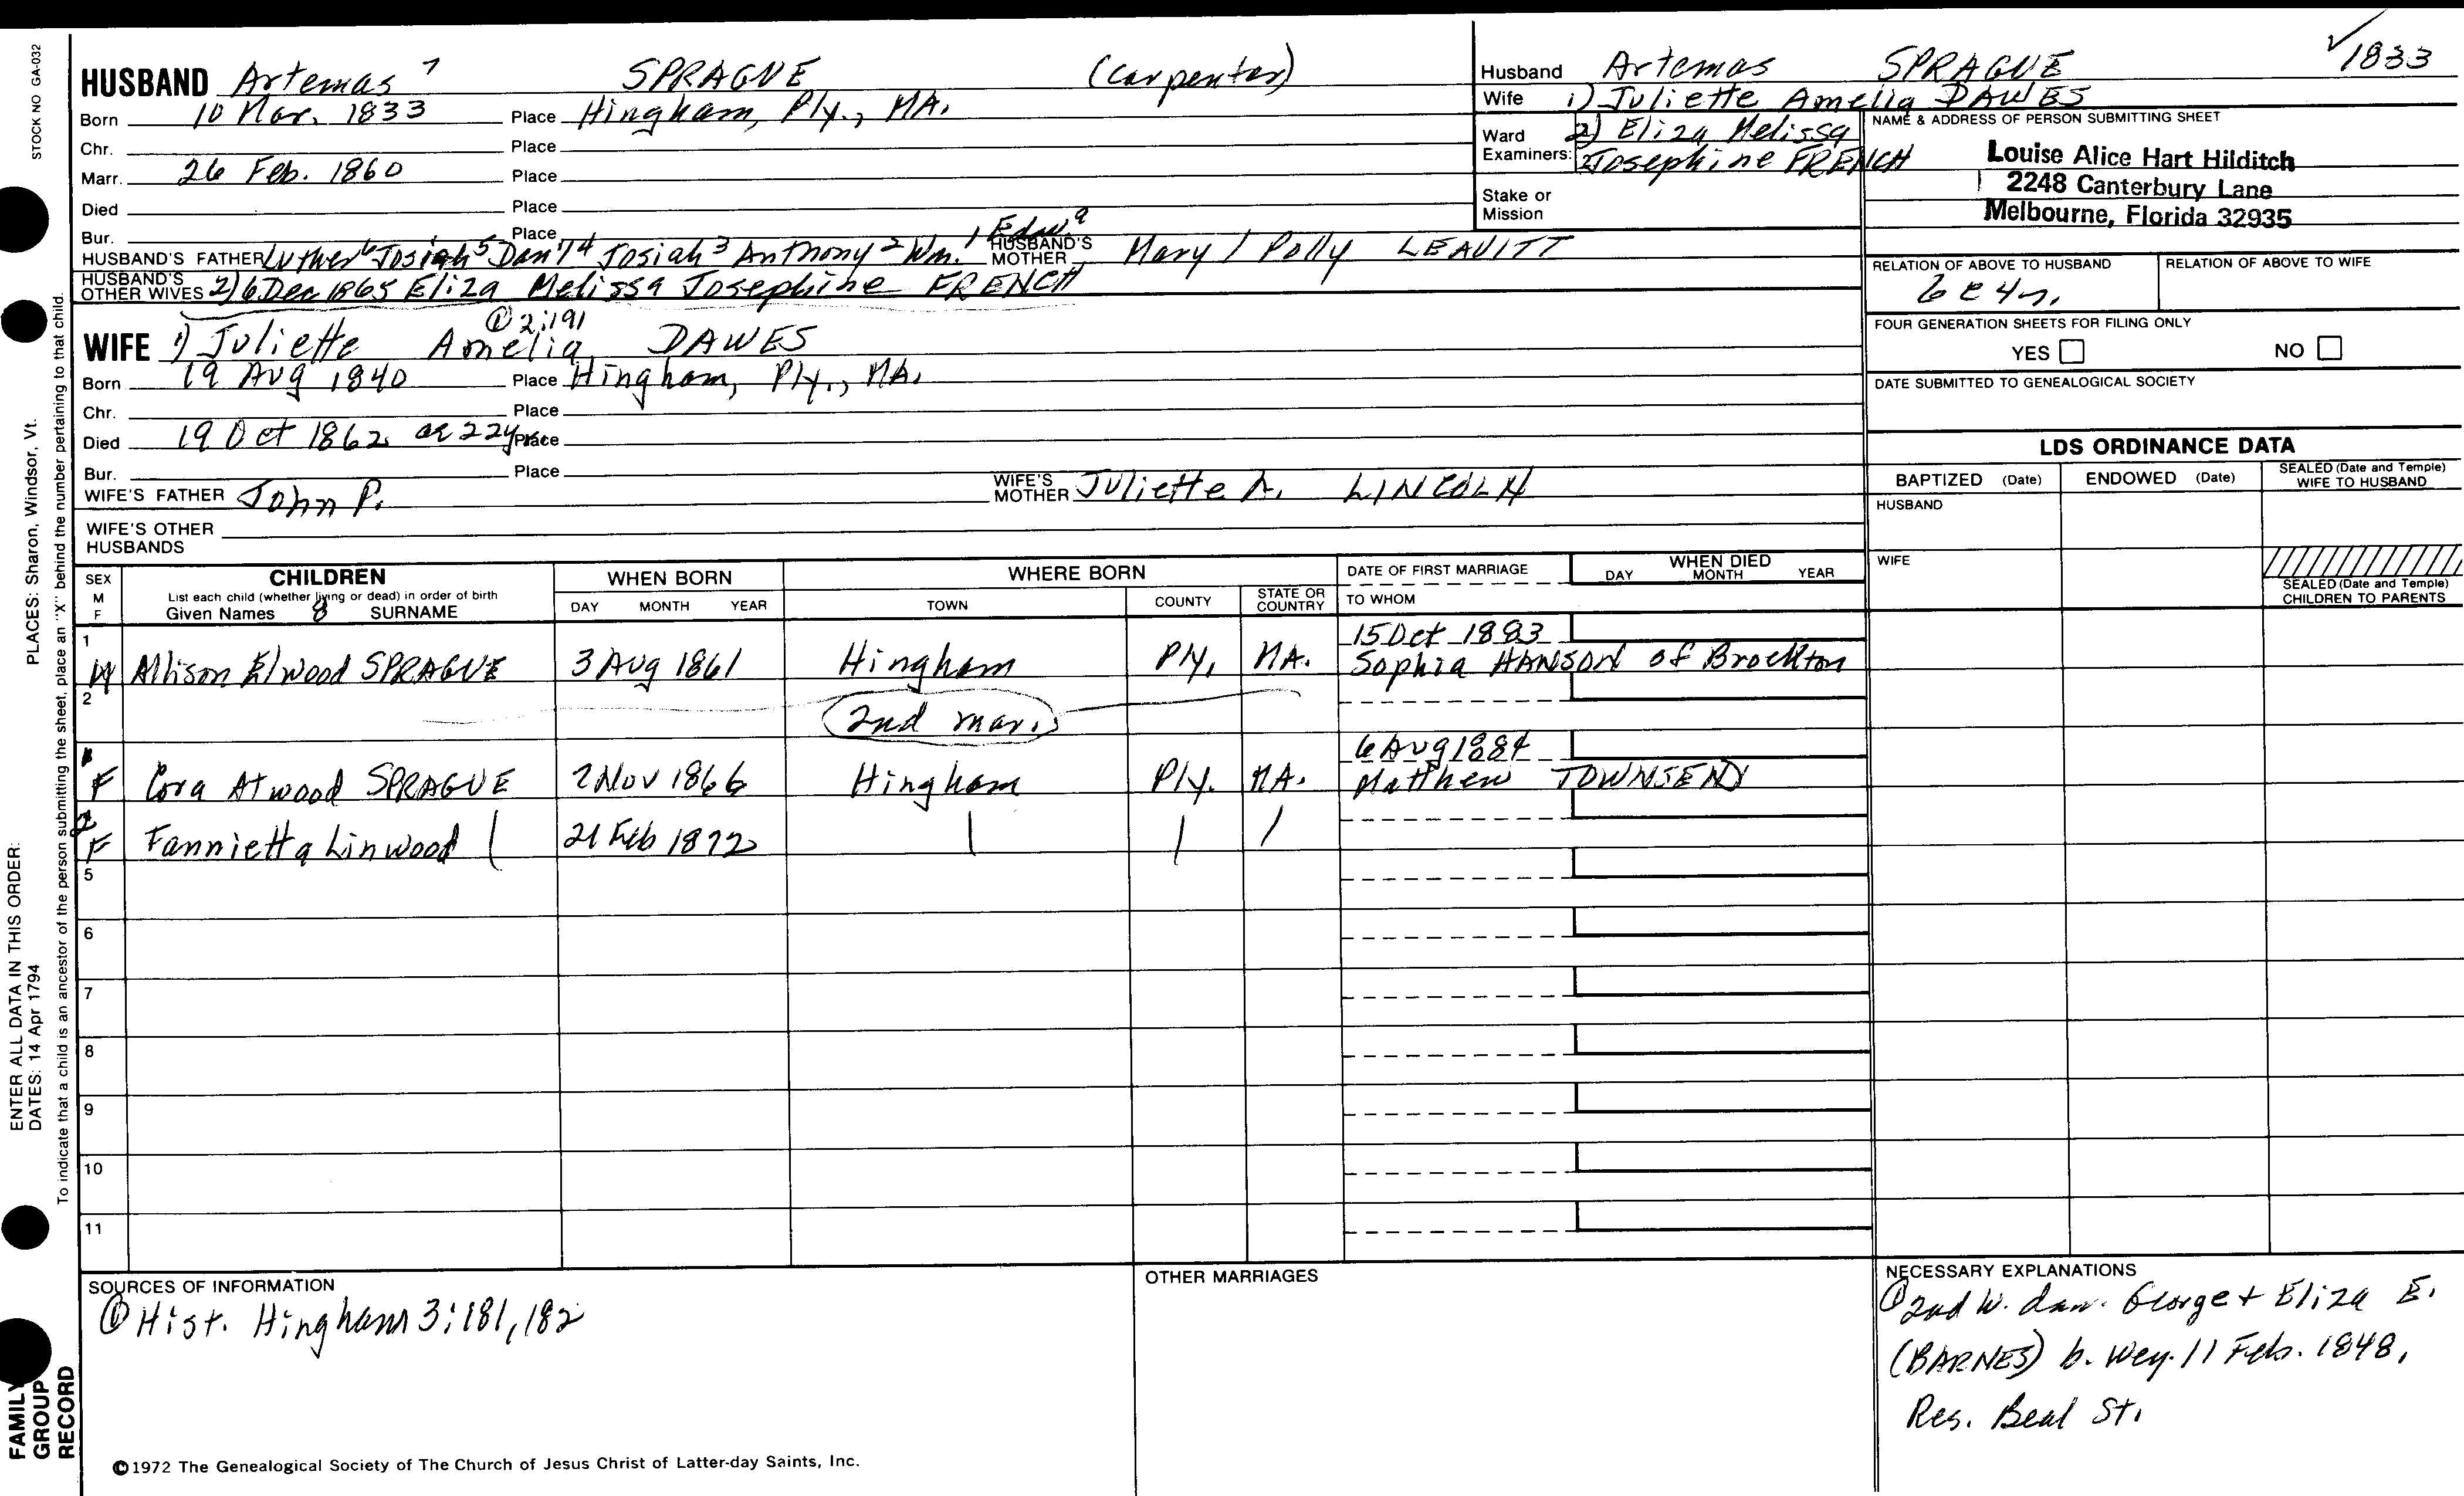 STOCK NO GA-032
PLACES: Sharon, Windsor, Vt.
ENTER ALL DATA IN THIS ORDER:
DATES: 14 Apr 1794
To indicate that a child is an ancestor of the person submitting the sheet, place an "X" behind the number pertaining to that child.
FAMILY GROUP RECORD
HUSBAND Artemas 7 SPRAGUE (carpenter)
Born 10 Mar. 1833 Place Hingham, Ply., MA.
Chr. Place
Marr. 26 Feb. 1860 Place
Died Place
Bur. Place
HUSBAND'S FATHER Luther 6 Josiah 5 Dan'l 4 Josiah 3 Anthony 2 Wm. 1 Edw. a HUSBAND'S MOTHER Mary / Polly LEAVITT
HUSBAND'S OTHER WIVES 2) 6 Dec 1865 Eliza Melissa Josephine FRENCH
① 2:191
WIFE 1) Juliette Amelia DAWES
Born 19 Aug 1840 Place Hingham, Ply., MA.
Chr. Place
Died 19 Oct 1862 ae 22y Place
Bur. Place
WIFE'S FATHER John P. WIFE'S MOTHER Juliette A. LINCOLN
WIFE'S OTHER HUSBANDS
✓1833
Husband Artemas SPRAGUE
Wife 1) Juliette Amelia DAWES
Ward 2) Eliza Melissa
Examiners: Josephine FRENCH
Stake or Mission
NAME & ADDRESS OF PERSON SUBMITTING SHEET
Louise Alice Hart Hilditch
2248 Canterbury Lane
Melbourne, Florida 32935
RELATION OF ABOVE TO HUSBAND RELATION OF ABOVE TO WIFE
6c4r.
FOUR GENERATION SHEETS FOR FILING ONLY
YES NO
DATE SUBMITTED TO GENEALOGICAL SOCIETY
LDS ORDINANCE DATA
BAPTIZED (Date) ENDOWED (Date) SEALED (Date and Temple) WIFE TO HUSBAND
HUSBAND
WIFE
SEALED (Date and Temple) CHILDREN TO PARENTS
SEX M F CHILDREN List each child (whether living or dead) in order of birth Given Names 8 SURNAME
WHEN BORN DAY MONTH YEAR
WHERE BORN TOWN COUNTY STATE OR COUNTRY
DATE OF FIRST MARRIAGE TO WHOM
WHEN DIED DAY MONTH YEAR
1 15 Oct 1883
M Allison Elwood SPRAGUE 3 Aug 1861 Hingham Ply. MA. Sophia HANSON of Brockton
2
2nd mar.
1 6 Aug 1884
F Cora Atwood SPRAGUE 2 Nov 1866 Hingham Ply. MA. Matthew TOWNSEND
2
F Fannietta Linwood 21 Feb 1872
5
6
7
8
9
10
11
SOURCES OF INFORMATION
① Hist. Hingham 3:181,182
OTHER MARRIAGES
NECESSARY EXPLANATIONS
① 2nd W. dau. George + Eliza E.
(BARNES) b. Wey. 11 Feb. 1848.
Res. Beal St.
©1972 The Genealogical Society of The Church of Jesus Christ of Latter-day Saints, Inc.